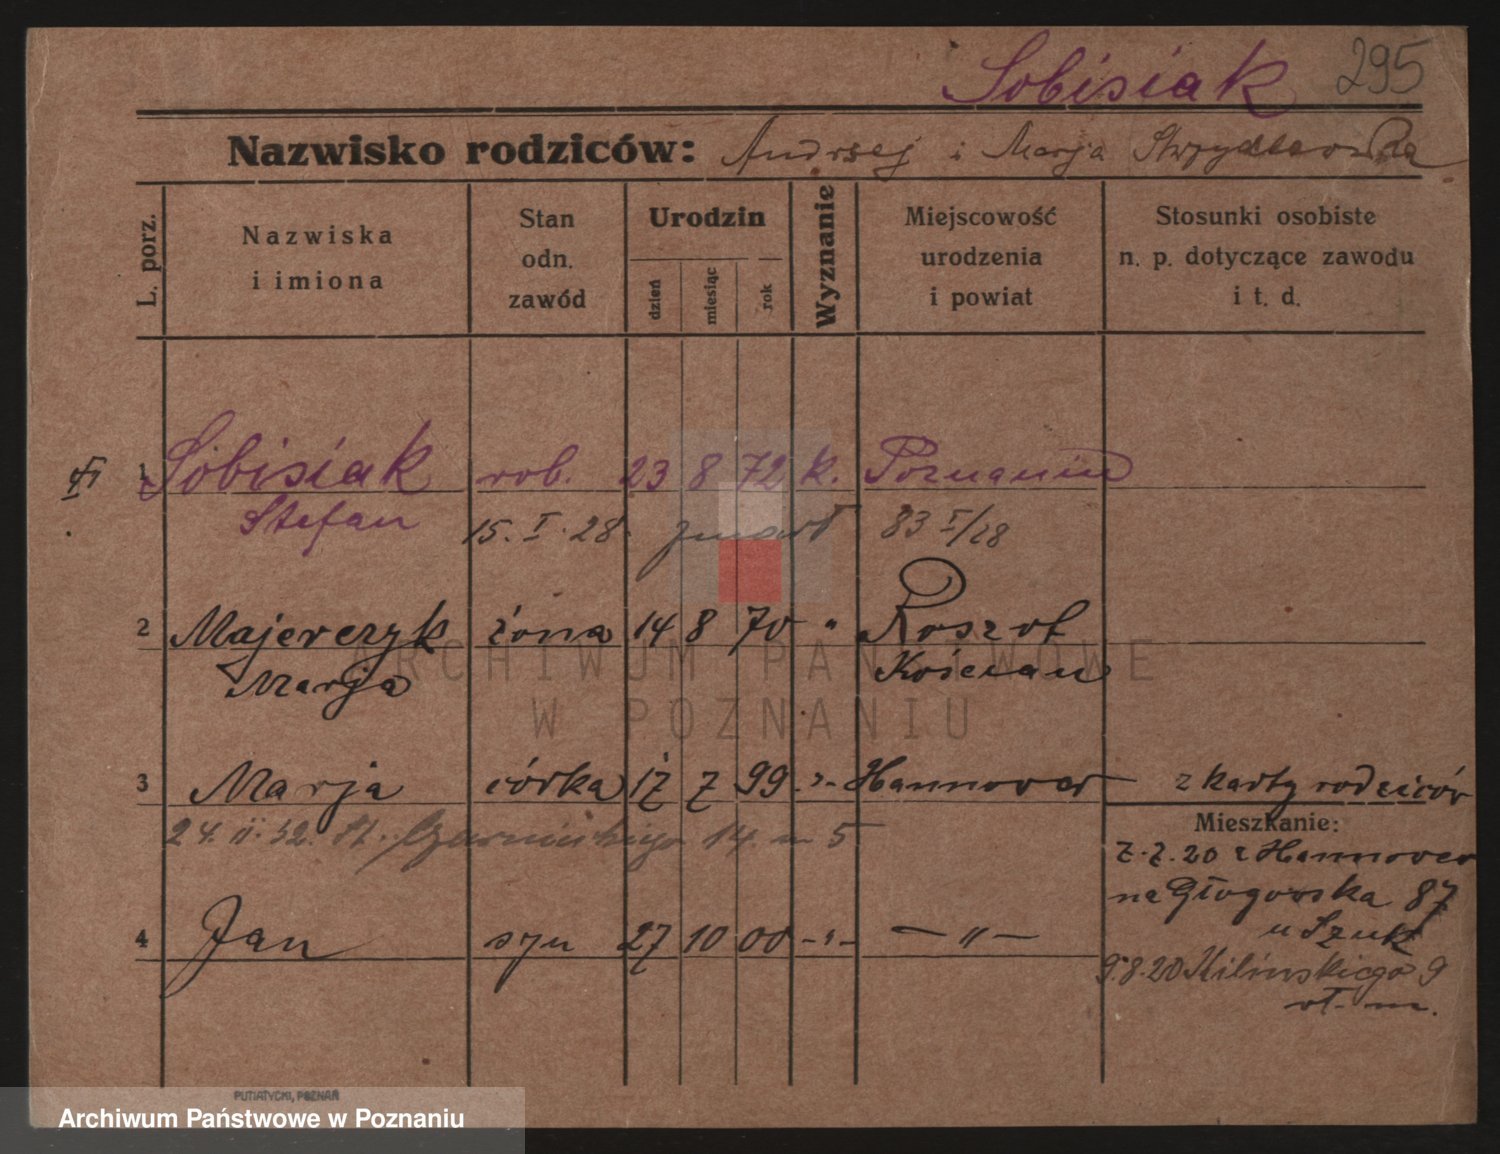 Sobisiak 295
Nazwisko rodziców: Andrzej i Marja
L. porz.
Nazwiska
i imiona
Stan
odn.
zawód
Urodzin
dzień
miesiąc
rok
Wyznanie
Miejscowość
urodzenia
i powiat
Stosunki osobiste
n. p. dotyczące zawodu
i t. d.
1 Sobisiak rob. 23 8 72 k. Poznaniu
Stefan 15. I. 28 zmarł 83 I/28
2 Majerczyk żona 14 8 70 " Roszot
Marja Kościan
3 Marja córka 17 7 99 -"- Hannover z karty rodziców
24. II. 32. 14. m 5
Mieszkanie:
7.7.20 z Hannover
na Głogowska 87
u Szuk
4 Jan syn 27 10 00 -"- —"—
9.8.20 Kilinskiego 9
wł. m.
ARCHIWUM PAŃSTWOWE
W POZNANIU
PUTIATYCKI, POZNAŃ
Archiwum Państwowe w Poznaniu